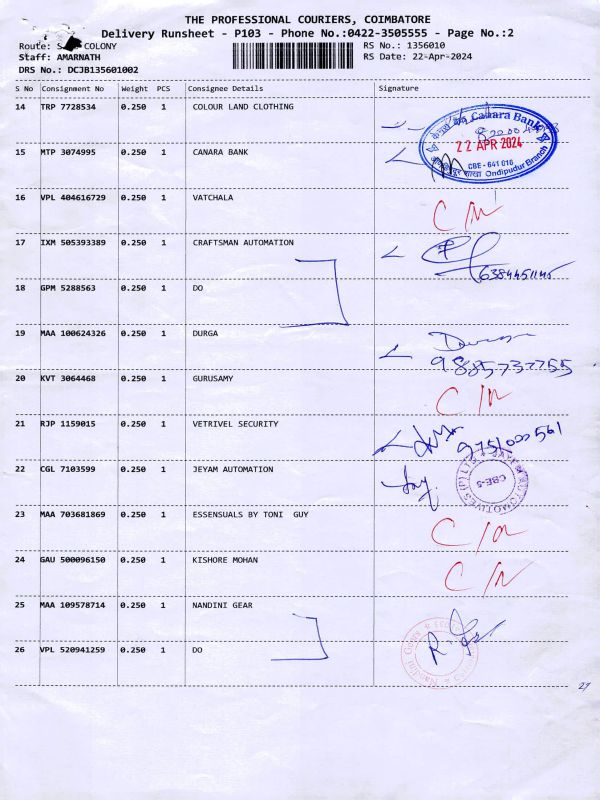 THE PROFESSIONAL COURIERS, COIMBATORE
Delivery Runsheet - P103 - Phone No.:0422-3505555 - Page No.:2
Route: S COLONY
RS No.: 1356010
Staff: AMARNATH
RS Date: 22-Apr-2024
DRS No.: DCJB135601002
S No Consignment No Weight PCS Consignee Details Signature
14 TRP 7728534 0.250 1 COLOUR LAND CLOTHING
Canara Bank
22 APR 2024
CBE - 641 016
Ondipudur Branch
15 MTP 3074995 0.250 1 CANARA BANK
16 VPL 404616729 0.250 1 VATCHALA C/N
17 IXM 505393389 0.250 1 CRAFTSMAN AUTOMATION
6384451145
18 GPM 5288563 0.250 1 DO
19 MAA 100624326 0.250 1 DURGA Durga
9885737755
20 KVT 3064468 0.250 1 GURUSAMY C/N
21 RJP 1159015 0.250 1 VETRIVEL SECURITY 9751000561
22 CGL 7103599 0.250 1 JEYAM AUTOMATION
CBE-5
23 MAA 703681869 0.250 1 ESSENSUALS BY TONI GUY C/N
24 GAU 500096150 0.250 1 KISHORE MOHAN C/N
25 MAA 109578714 0.250 1 NANDINI GEAR
26 VPL 520941259 0.250 1 DO
27